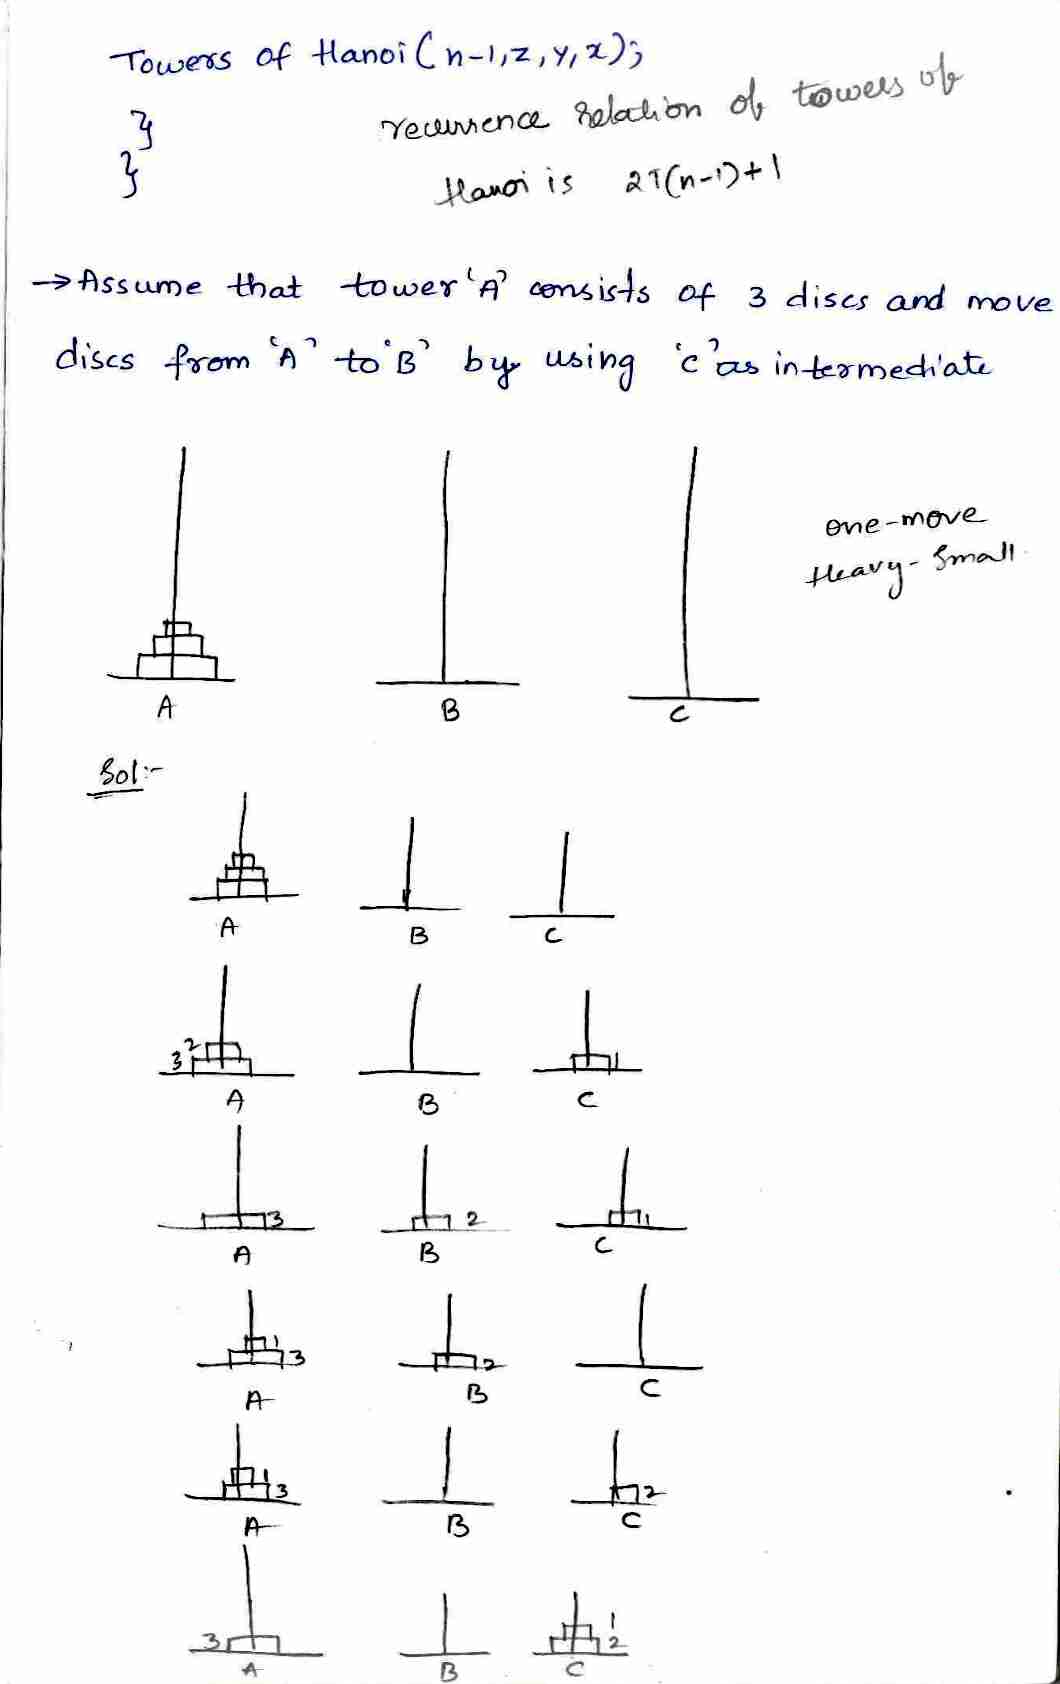 Towers of Hanoi(n-1,z,y,x);
}
}
recurrence relation of towers of
Hanoi is 2T(n-1)+1
→Assume that tower 'A' consists of 3 discs and move
discs from 'A' to 'B' by using 'c' as intermediate
one-move
Heavy-small
A B C
Sol:-
A B C
3 2 1
A B C
3 2 1
A B C
1 3 2
A B C
1 3 2
A B C
3 1 2
A B C